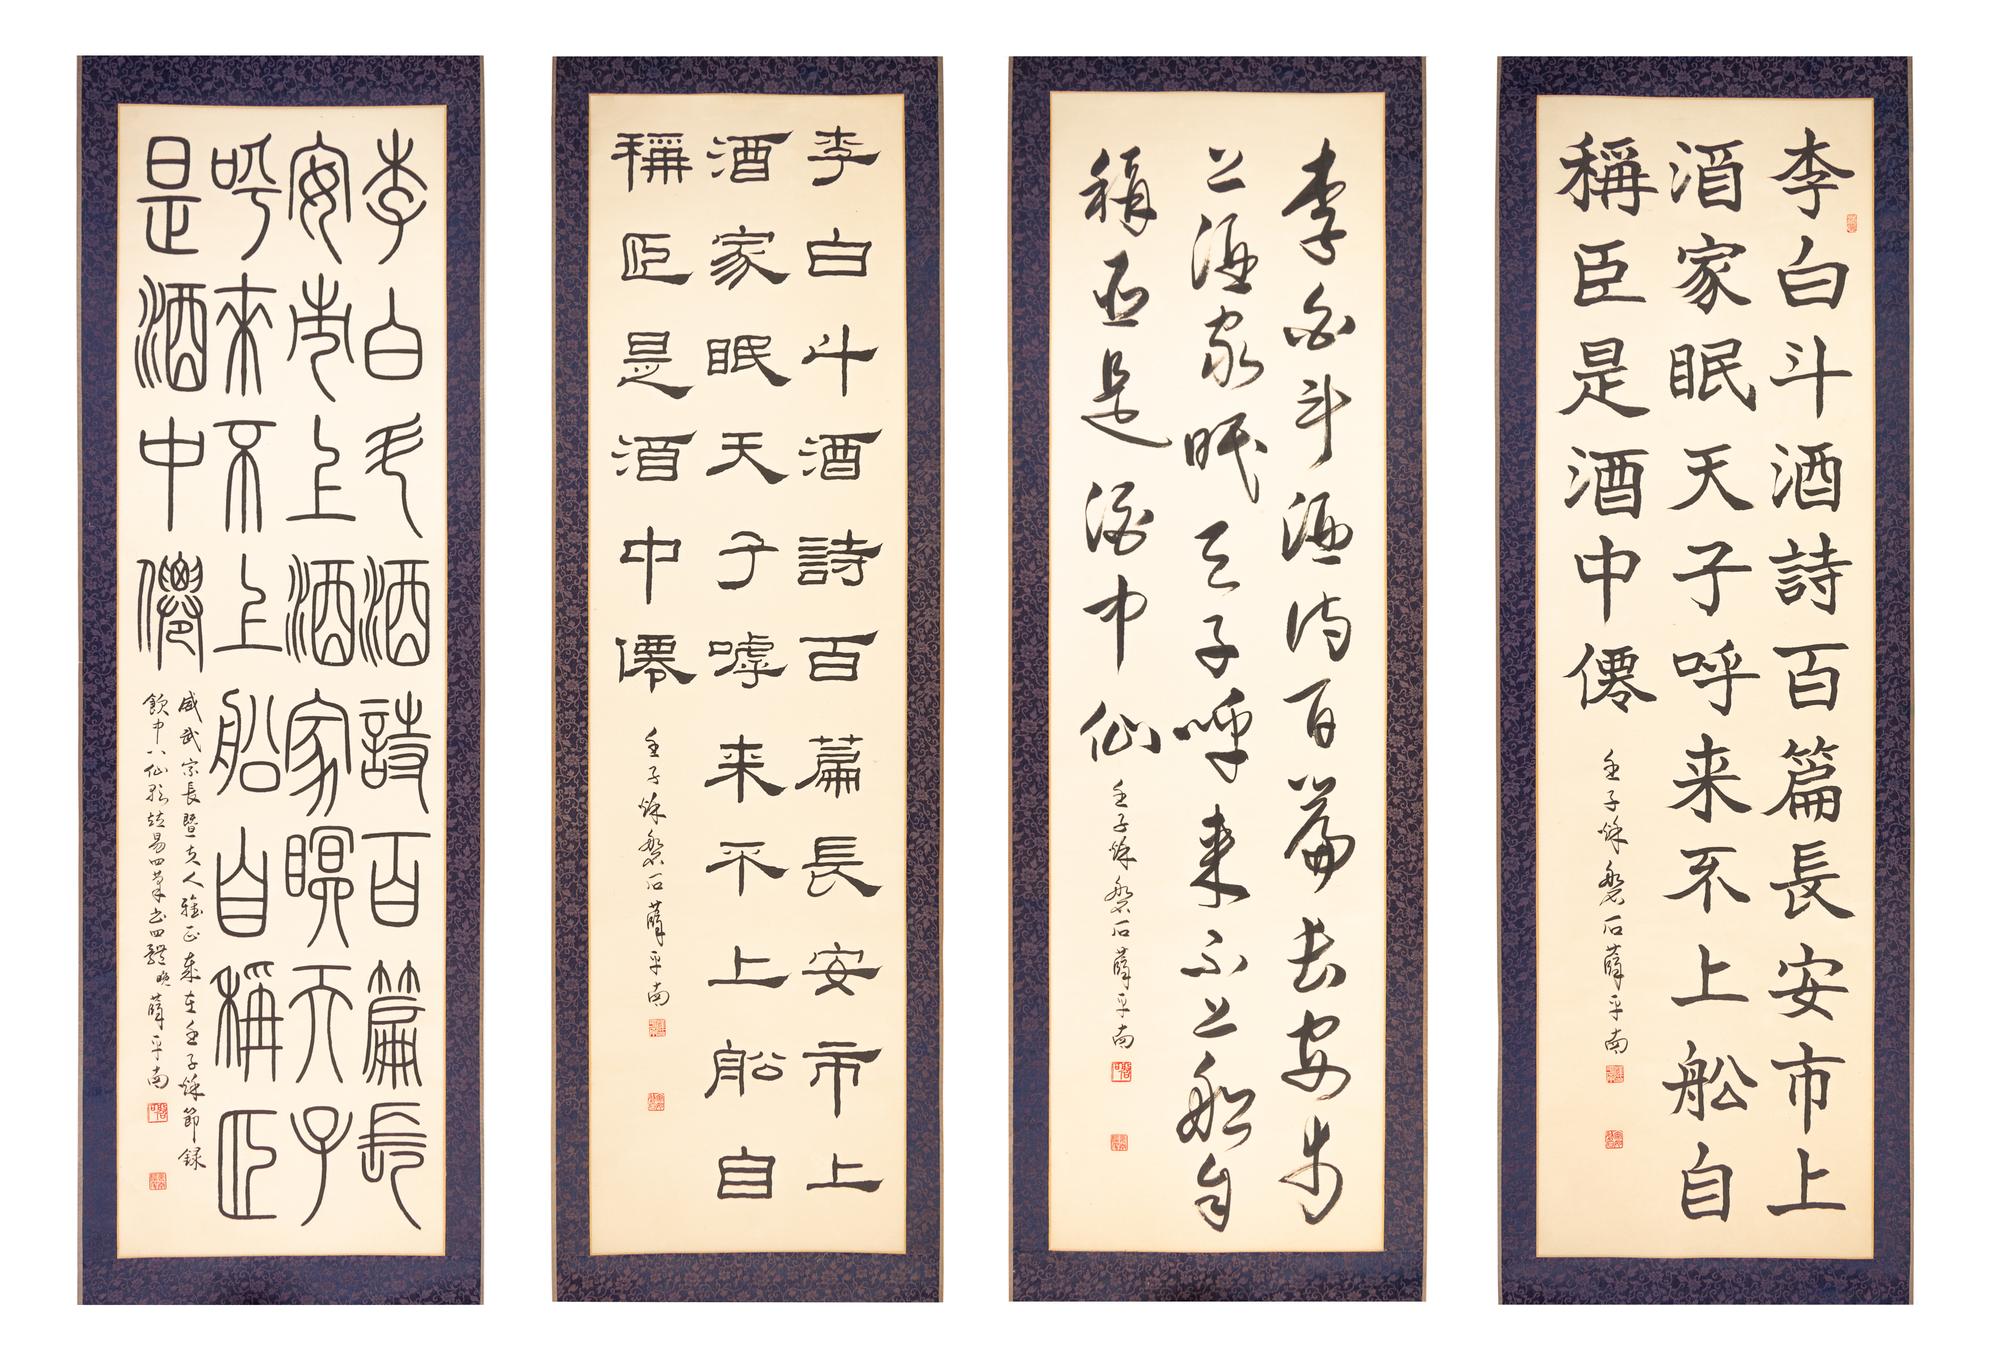 李白斗酒詩百篇長安市上
酒家眠天子呼来不上舩自
稱臣是酒中僊
壬子秌磐石薛平南
李白斗酒詩百篇長安市
上酒家眠天子呼来不上船自
稱臣是酒中仙
壬子秌磐石薛平南
李白斗酒詩百篇長安市上
酒家眠天子嘑来不上舩自
稱臣是酒中僊
壬子秌磐石薛平南
李白斗酒詩百篇長
安市上酒家瞑天子
呼來不上船自稱臣
是酒中僊
威武宗長暨夫人雅正歲在壬子秌節録
飲中八仙歌竝易四筆書四體晚薛平南